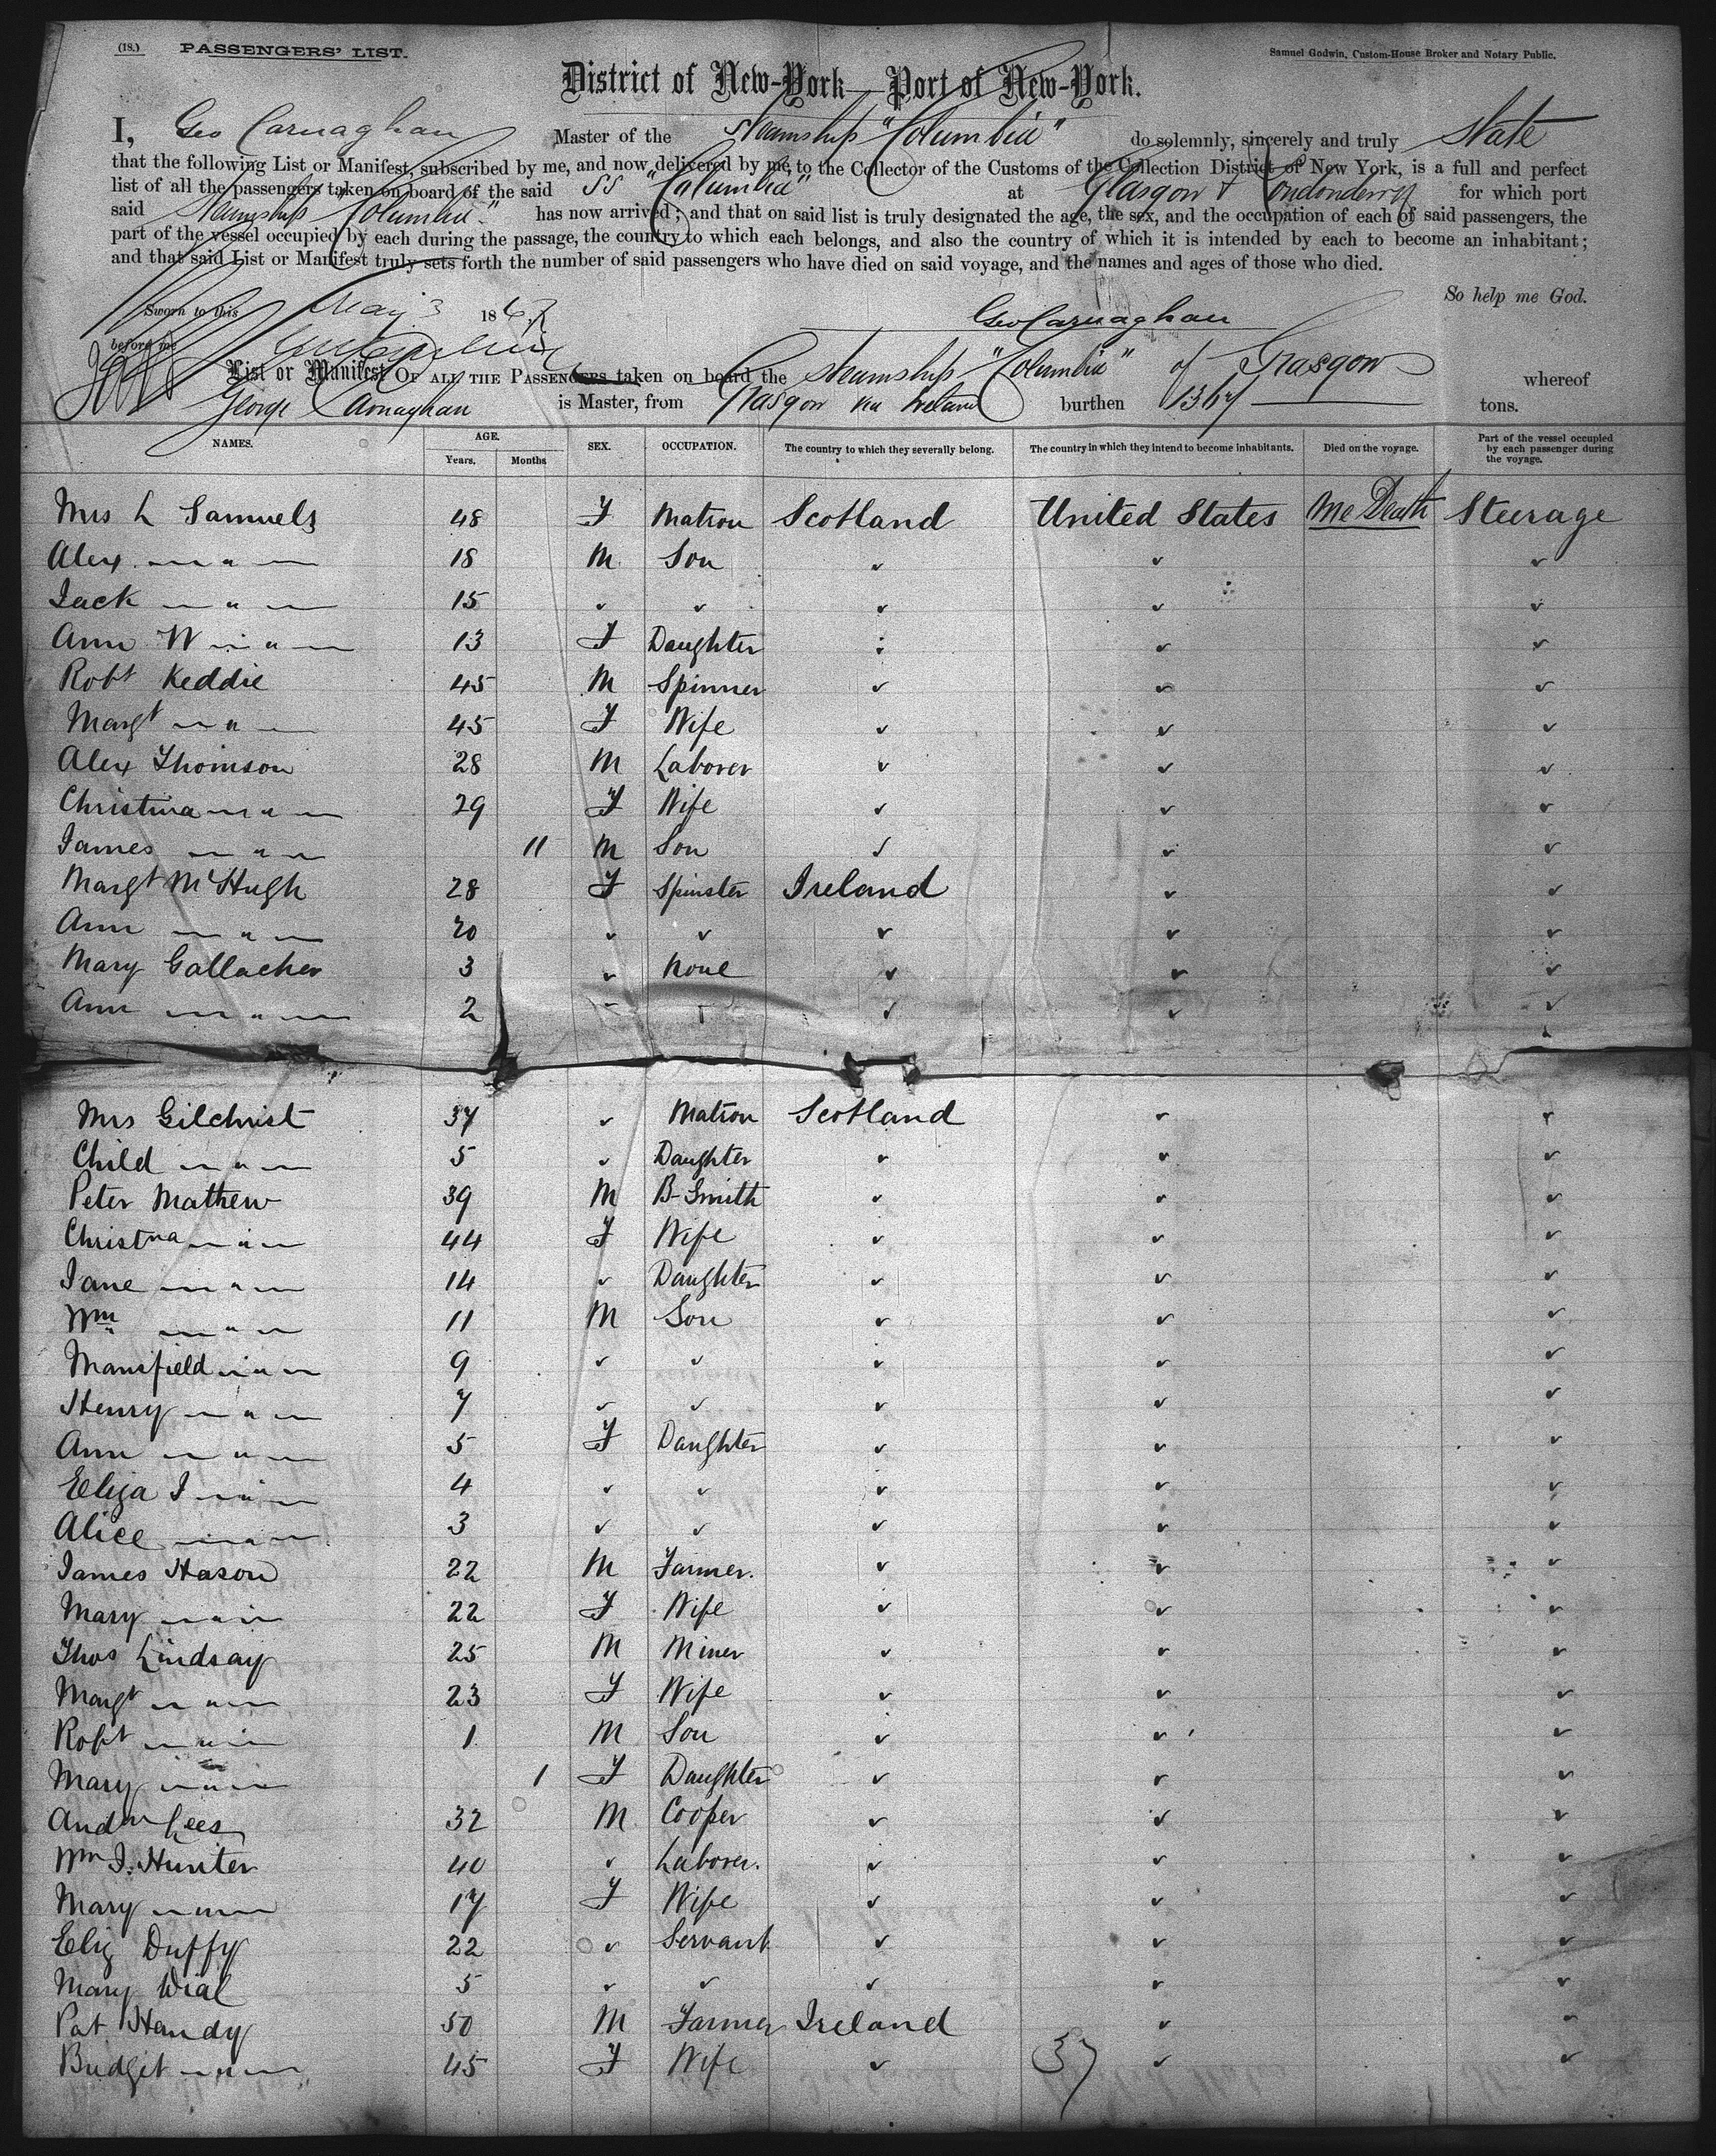 (18.) PASSENGERS' LIST. Samuel Godwin, Custom-House Broker and Notary Public.
District of New-York—Port of New-York.
I, Geo Carnaghan Master of the Steamship "Columbia" do solemnly, sincerely and truly State
that the following List or Manifest, subscribed by me, and now delivered by me, to the Collector of the Customs of the Collection District of New York, is a full and perfect
list of all the passengers taken on board of the said SS "Columbia" at Glasgow & Londonderry for which port
said Steamship "Columbia" has now arrived; and that on said list is truly designated the age, the sex, and the occupation of each of said passengers, the
part of the vessel occupied by each during the passage, the country to which each belongs, and also the country of which it is intended by each to become an inhabitant;
and that said List or Manifest truly sets forth the number of said passengers who have died on said voyage, and the names and ages of those who died.
So help me God.
Sworn to this May 3 1867 Geo Carnaghan
before me
List or Manifest OF ALL THE PASSENGERS taken on board the Steamship "Columbia" of Glasgow whereof
George Carnaghan is Master, from Glasgow via Ireland burthen 1367 tons.
NAMES. AGE. Years. Months SEX. OCCUPATION. The country to which they severally belong. The country in which they intend to become inhabitants. Died on the voyage. Part of the vessel occupied by each passenger during the voyage.
Mrs L Samuels 48 F Matron Scotland United States Death Steerage
Alex — " — 18 M Son ✓ ✓ ✓
Jack — " — 15 ✓ ✓ ✓ ✓ ✓
Ann W — " — 13 F Daughter : ✓ ✓
Robt Keddie 45 M Spinner ✓ ✓ ✓
Margt — " — 45 F Wife ✓ ✓ ✓
Alex Thomson 28 M Laborer ✓ ✓ ✓
Christina — " — 29 F Wife ✓ ✓ ✓
James — " — 11 M Son ✓ ✓ ✓
Margt McHugh 28 F Spinster Ireland ✓ ✓
Ann — " — 20 ✓ ✓ ✓ ✓ ✓
Mary Gallacher 3 ✓ None ✓ ✓ ✓
Ann — " — 2 ✓ ✓ ✓ ✓ ✓
Mrs Gilchrist 37 ✓ Matron Scotland ✓ ✓
Child — " — 5 ✓ Daughter ✓ ✓ ✓
Peter Mathew 39 M B-Smith ✓ ✓ ✓
Christna — " — 44 F Wife ✓ ✓ ✓
Jane — " — 14 ✓ Daughter ✓ ✓ ✓
Wm — " — 11 M Son ✓ ✓ ✓
Mansfield — " — 9 ✓ ✓ ✓ ✓ ✓
Henry — " — 7 ✓ ✓ ✓ ✓ ✓
Ann — " — 5 F Daughter ✓ ✓ ✓
Eliza J — " — 4 ✓ ✓ ✓ ✓ ✓
Alice — " — 3 ✓ ✓ ✓ ✓ ✓
James Hason 22 M Farmer. ✓ ✓ ✓
Mary — " — 22 F Wife ✓ ✓ ✓
Thos Lindsay 25 M Miner ✓ ✓ ✓
Margt — " — 23 F Wife ✓ ✓ ✓
Robt — " — 1 M Son ✓ ✓ ✓
Mary — " — 1 F Daughter ✓ ✓ ✓
Andw Lees 32 M Cooper ✓ ✓ ✓
Wm J. Hunter 40 ✓ Laborer. ✓ ✓ ✓
Mary — " — 17 F Wife ✓ ✓ ✓
Eliz Duffy 22 ✓ Servant ✓ ✓ ✓
Mary Wial 5 ✓ ✓ ✓ ✓ ✓
Pat Handy 50 M Farmer Ireland ✓ ✓
Bridget — " — 45 F Wife ✓ ✓ ✓
37